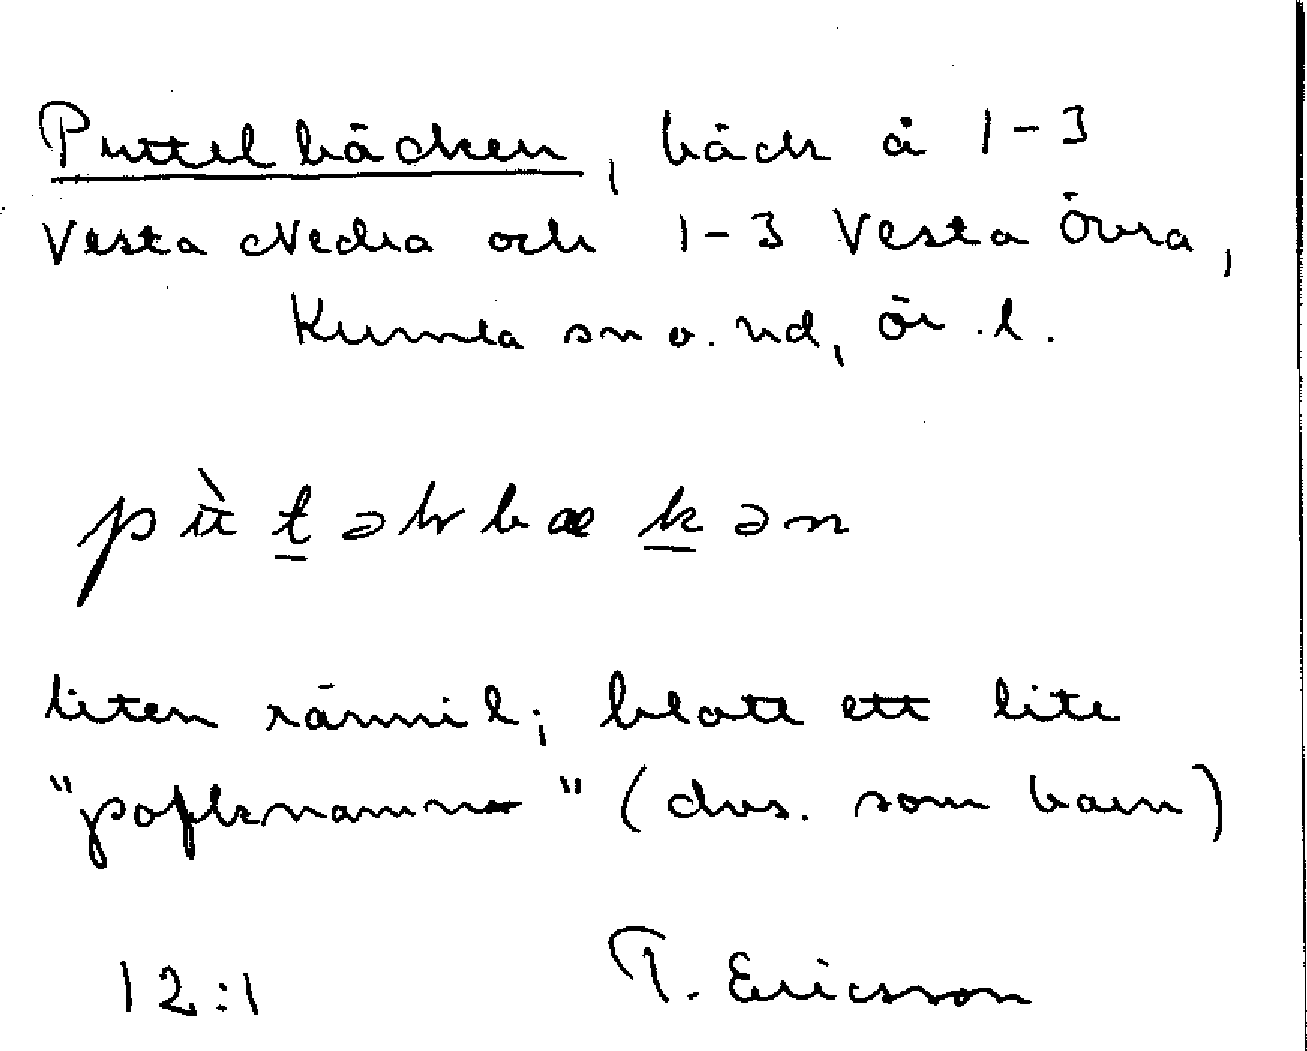 Puttelbäcken, bäck å 1-3
Vesta Nedra och 1-3 Vesta Övra,
Kumla sn o. hd, Ör. l.
pùtəlbækən
liten rännil; blott ett lite
"pofknamn" (dvs. som barn)
12:1 T. Ericsson